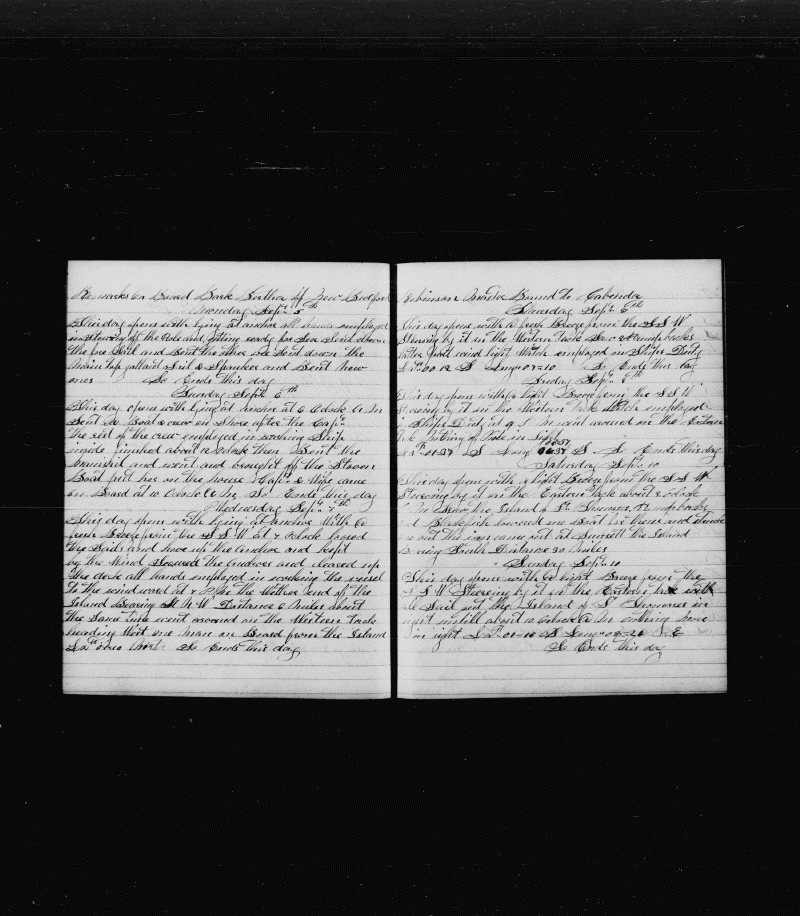 Remarks on Board Bark Bertha of New Bedford
Monday Sept. 5th
This day opens with lying at anchor all hands employed
in stowing off the Hole and getting ready for Sea Send down
the fore Sail and bent the other one Send down the
Main top gallant Sail & Spanker and Bent New
ones So Ends this day
Tuesday Sept. 6th
This day opens with lying at anchor at 6 Oclock A M
Sent a Boats crew on Shore after the Capt.
The rest of the crew employed in washing Ship
inside finished about 10 oclock then Bent the
and went and brought off the Steven
Boat put her on the house Capt. & Wife came
on Board at 10 Oclock A M So Ends this day
Wednesday Sept. 7th
This day opens with lying at anchor With a
fresh Breeze from the S S W at 7 Oclock loosed
the Sails and hove up the Anchor and kept
by the Wind Secured the Anchors and cleared up
the deck all hands employed in working the vessel
to the windward at 7 P M the Wother end of the
Island Bearing W N W Distance 6 Miles about
the Same time went around on the Western Tack
heading West one man on Board from the Island
Lat. So Ends this day
Robinson Master Bound to Cabenda
Thursday Sept. 8th
This day opens with a fresh Breeze from the S S W
Steering by it on the Western Tack Saw humpbacks
latter part wind light Watch employed in Ships Duty
Lat. 00 12 S Long 07-10 So Ends this day
Friday Sept. 9th
This day opens with a light Breeze from the S S W
Steering by it on the Western Tack Watch employed
in Ships Duty at 9 P M went around on the Eastern
Tack
Lat. 01 37 S Long 06 37 So Ends this day
Saturday Sept. 10
This day opens with a light Breeze from the S S W
Steering by it on the Eastern Tack about 7 oclock
P M Saw the Island of St. Thomas humpbacks
and Blackfish lowered one Boat for them and
out the iron came out at Sunsett the Island
bearing South Distance 30 Miles
Sunday Sept. 10
This day opens with a light Breeze from the
S S W Steering by it on the Eastern Tack with
all Sail on the Island of St Thomas in
sight untill about 10 Oclock A M nothing more
in sight Lat. 01-10 S Long 08-20 E
So Ends this day